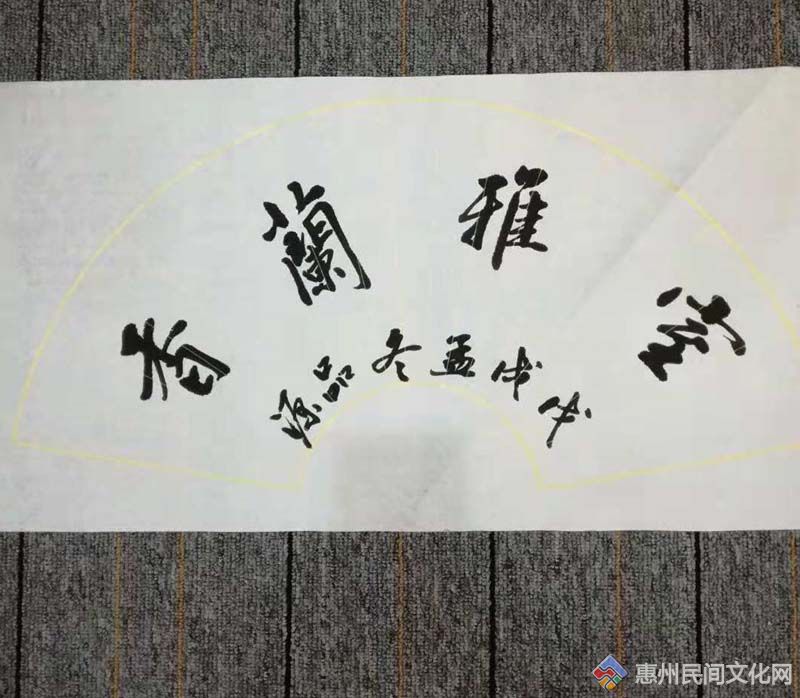 室雅蘭香
戊戌孟冬品源
惠州民间文化网